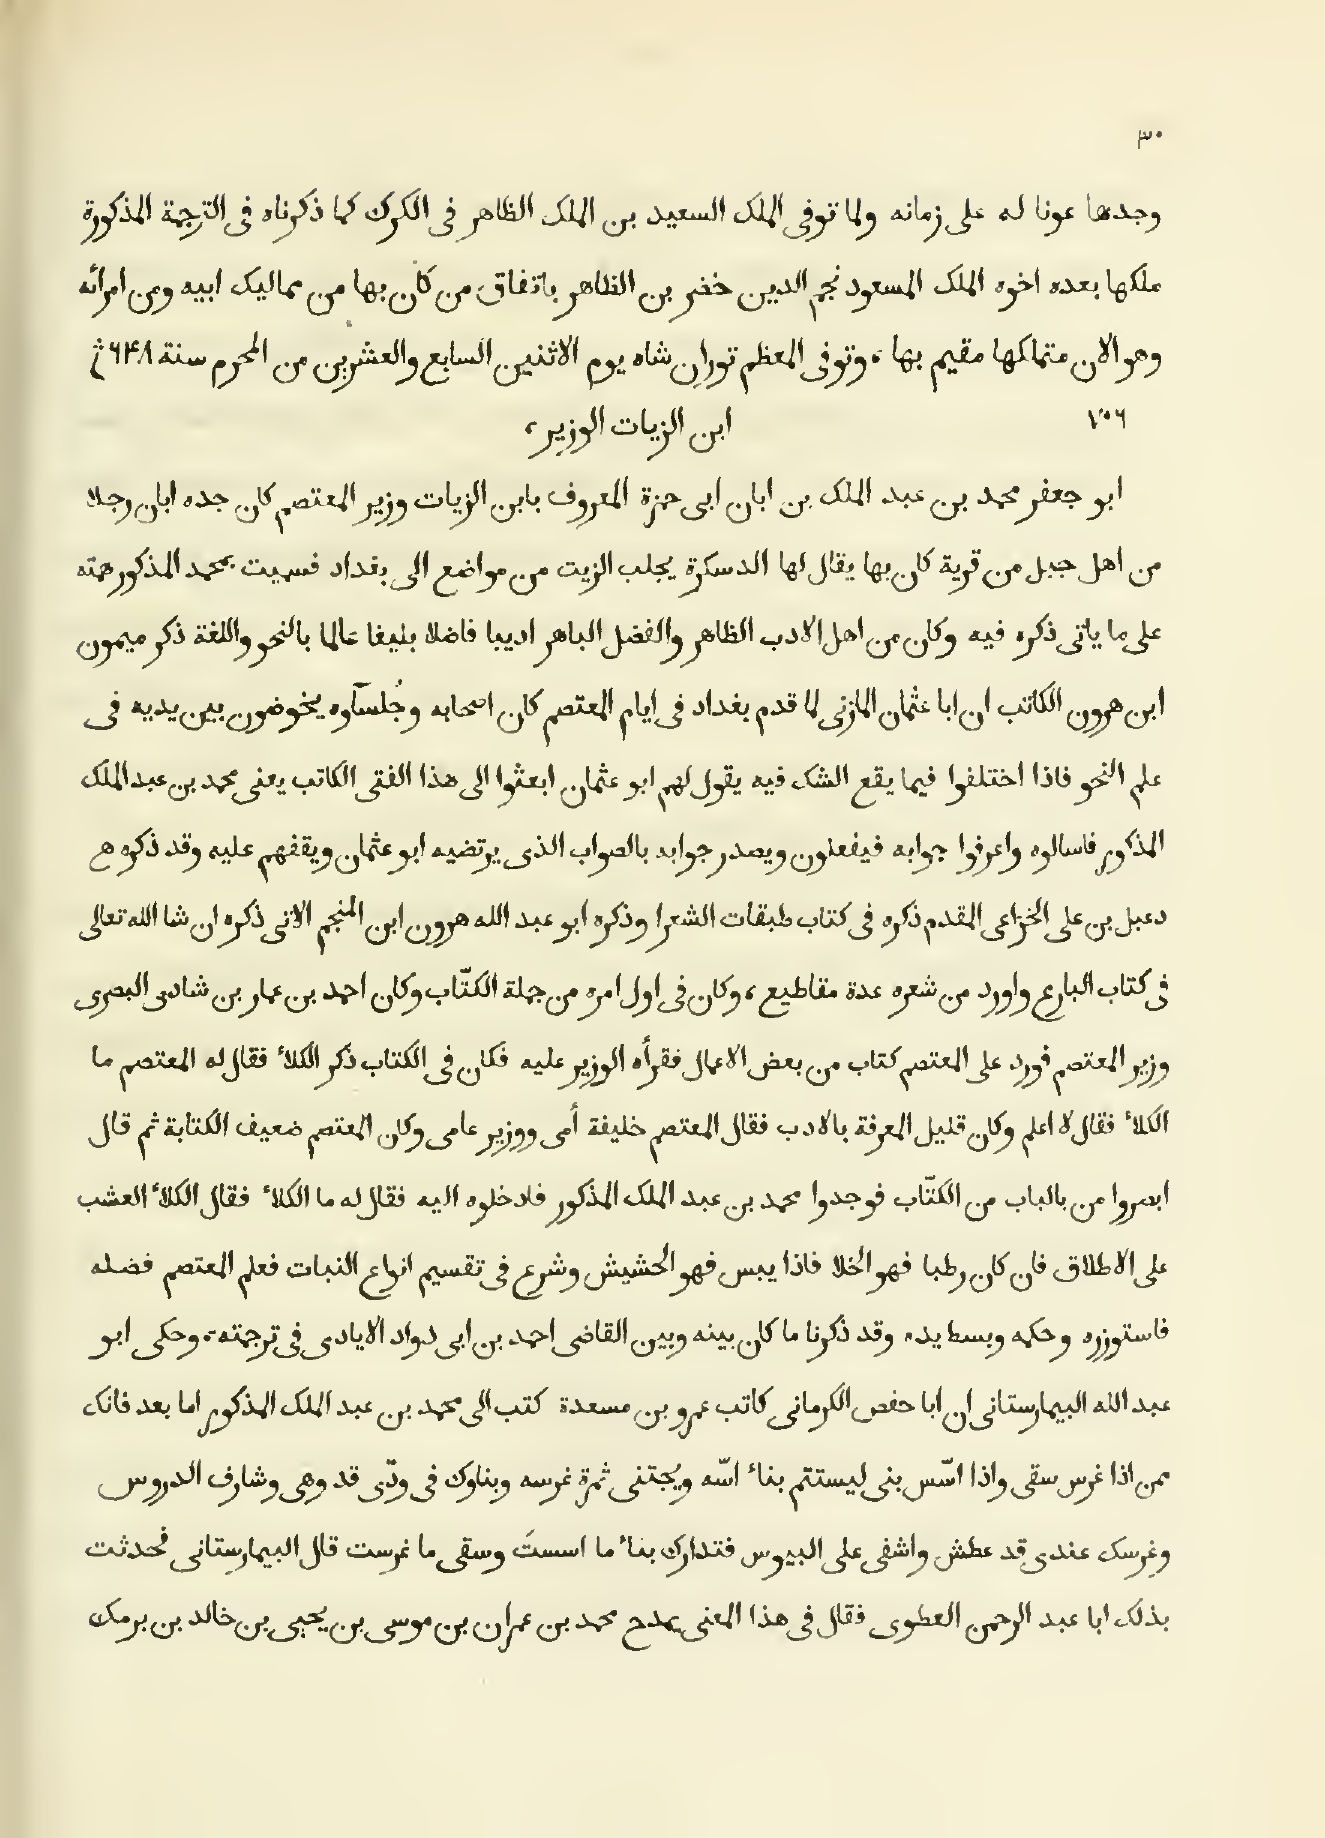 ٣٠
وجدها عونا له على زمانه ولما توفى الملك السعيد بن الملك الظاهر فى الكرك كما ذكرناه فى الترجمة المذكورة
ملكها بعده اخوه الملك المسعود نجم الدين خضر بن الظاهر باتفاق من كان بها من مماليك ابيه ومن امرائه
وهو الان متملكها مقيم بها، وتوفى المعظم توران شاه يوم الاثنين السابع والعشرين من المحرم سنة ٦٤٨
٧٠٦ ابن الزيات الوزير،
ابو جعفر محمد بن عبد الملك بن ابان ابى حمزة المعروف بابن الزيات وزير المعتصم كان جده ابان رجلا
من اهل جبل من قرية كان بها يقال لها الدسكرة يجلب الزيت من مواضع الى بغداد فسميت بمحمد المذكور همته
على ما ياتى ذكره فيه وكان من اهل الادب الظاهر والفضل الباهر اديبا فاضلا بليغا عالما بالنحو واللغة ذكر ميمون
ابن هرون الكاتب ان ابا عثمان المازنى لما قدم بغداد فى ايام المعتصم كان اصحابه وجُلسآوه يخوضون بين يديه فى
علم النحو فاذا اختلفوا فيما يقع الشك فيه يقول لهم ابو عثمان ابعثوا الى هذا الفتى الكاتب يعنى محمد بن عبد الملك
المذكور فاسالوه واعرفوا جوابه فيفعلون ويصدر جوابه بالصواب الذى يرتضيه ابو عثمان ويقفهم عليه وقد ذكره
دعبل بن على الخزاعى المقدم ذكره فى كتاب طبقات الشعرا وذكره ابو عبد الله هرون ابن المنجم الاتى ذكره ان شا الله تعالى
فى كتاب البارع واورد من شعره عدة مقاطيع، وكان فى اول امره من جملة الكتّاب وكان احمد بن عمار بن شادى البصرى
وزير المعتصم فورد على المعتصم كتاب من بعض الاعمال فقرأه الوزير عليه فكان فى الكتاب ذكر الكلاٴ فقال له المعتصم ما
الكلاٴ فقال لا اعلم وكان قليل المعرفة بالادب فقال المعتصم خليفة أمى ووزير عامى وكان المعتصم ضعيف الكتابة ثم قال
ابصروا من بالباب من الكتّاب فوجدوا محمد بن عبد الملك المذكور فادخلوه اليه فقال له ما الكلاٴ فقال الكلاٴ العشب
على الاطلاق فان كان رطبا فهو الخلا فاذا يبس فهو الحشيش وشرع فى تقسيم انواع النبات فعلم المعتصم فضله
فاستوزره وحكمه وبسط يده وقد ذكرنا ما كان بينه وبين القاضى احمد بن ابى دواد الايادى فى ترجمته، وحكى ابو
عبد الله البيمارستانى ان ابا حفص الكرمانى كاتب عمرو بن مسعدة كتب الى محمد بن عبد الملك المذكور اما بعد فانك
ممن اذا غرس سقى واذا اسّس بنى ليستتم بناٴ اسّه ويُجتنى ثمرة غرسه وبناوك فى ودّى قد وهى وشارف الدروس
وغرسك عندى قد عطش واشفى على اليبوس فتدارك بناٴ ما اسستَ وسقى ما غرست قال البيمارستانى فحدثت
بذلك ابا عبد الرحمن العطوى فقال فى هذا المعنى يمدح محمد بن عمران بن موسى بن يحيى بن خالد بن برمك